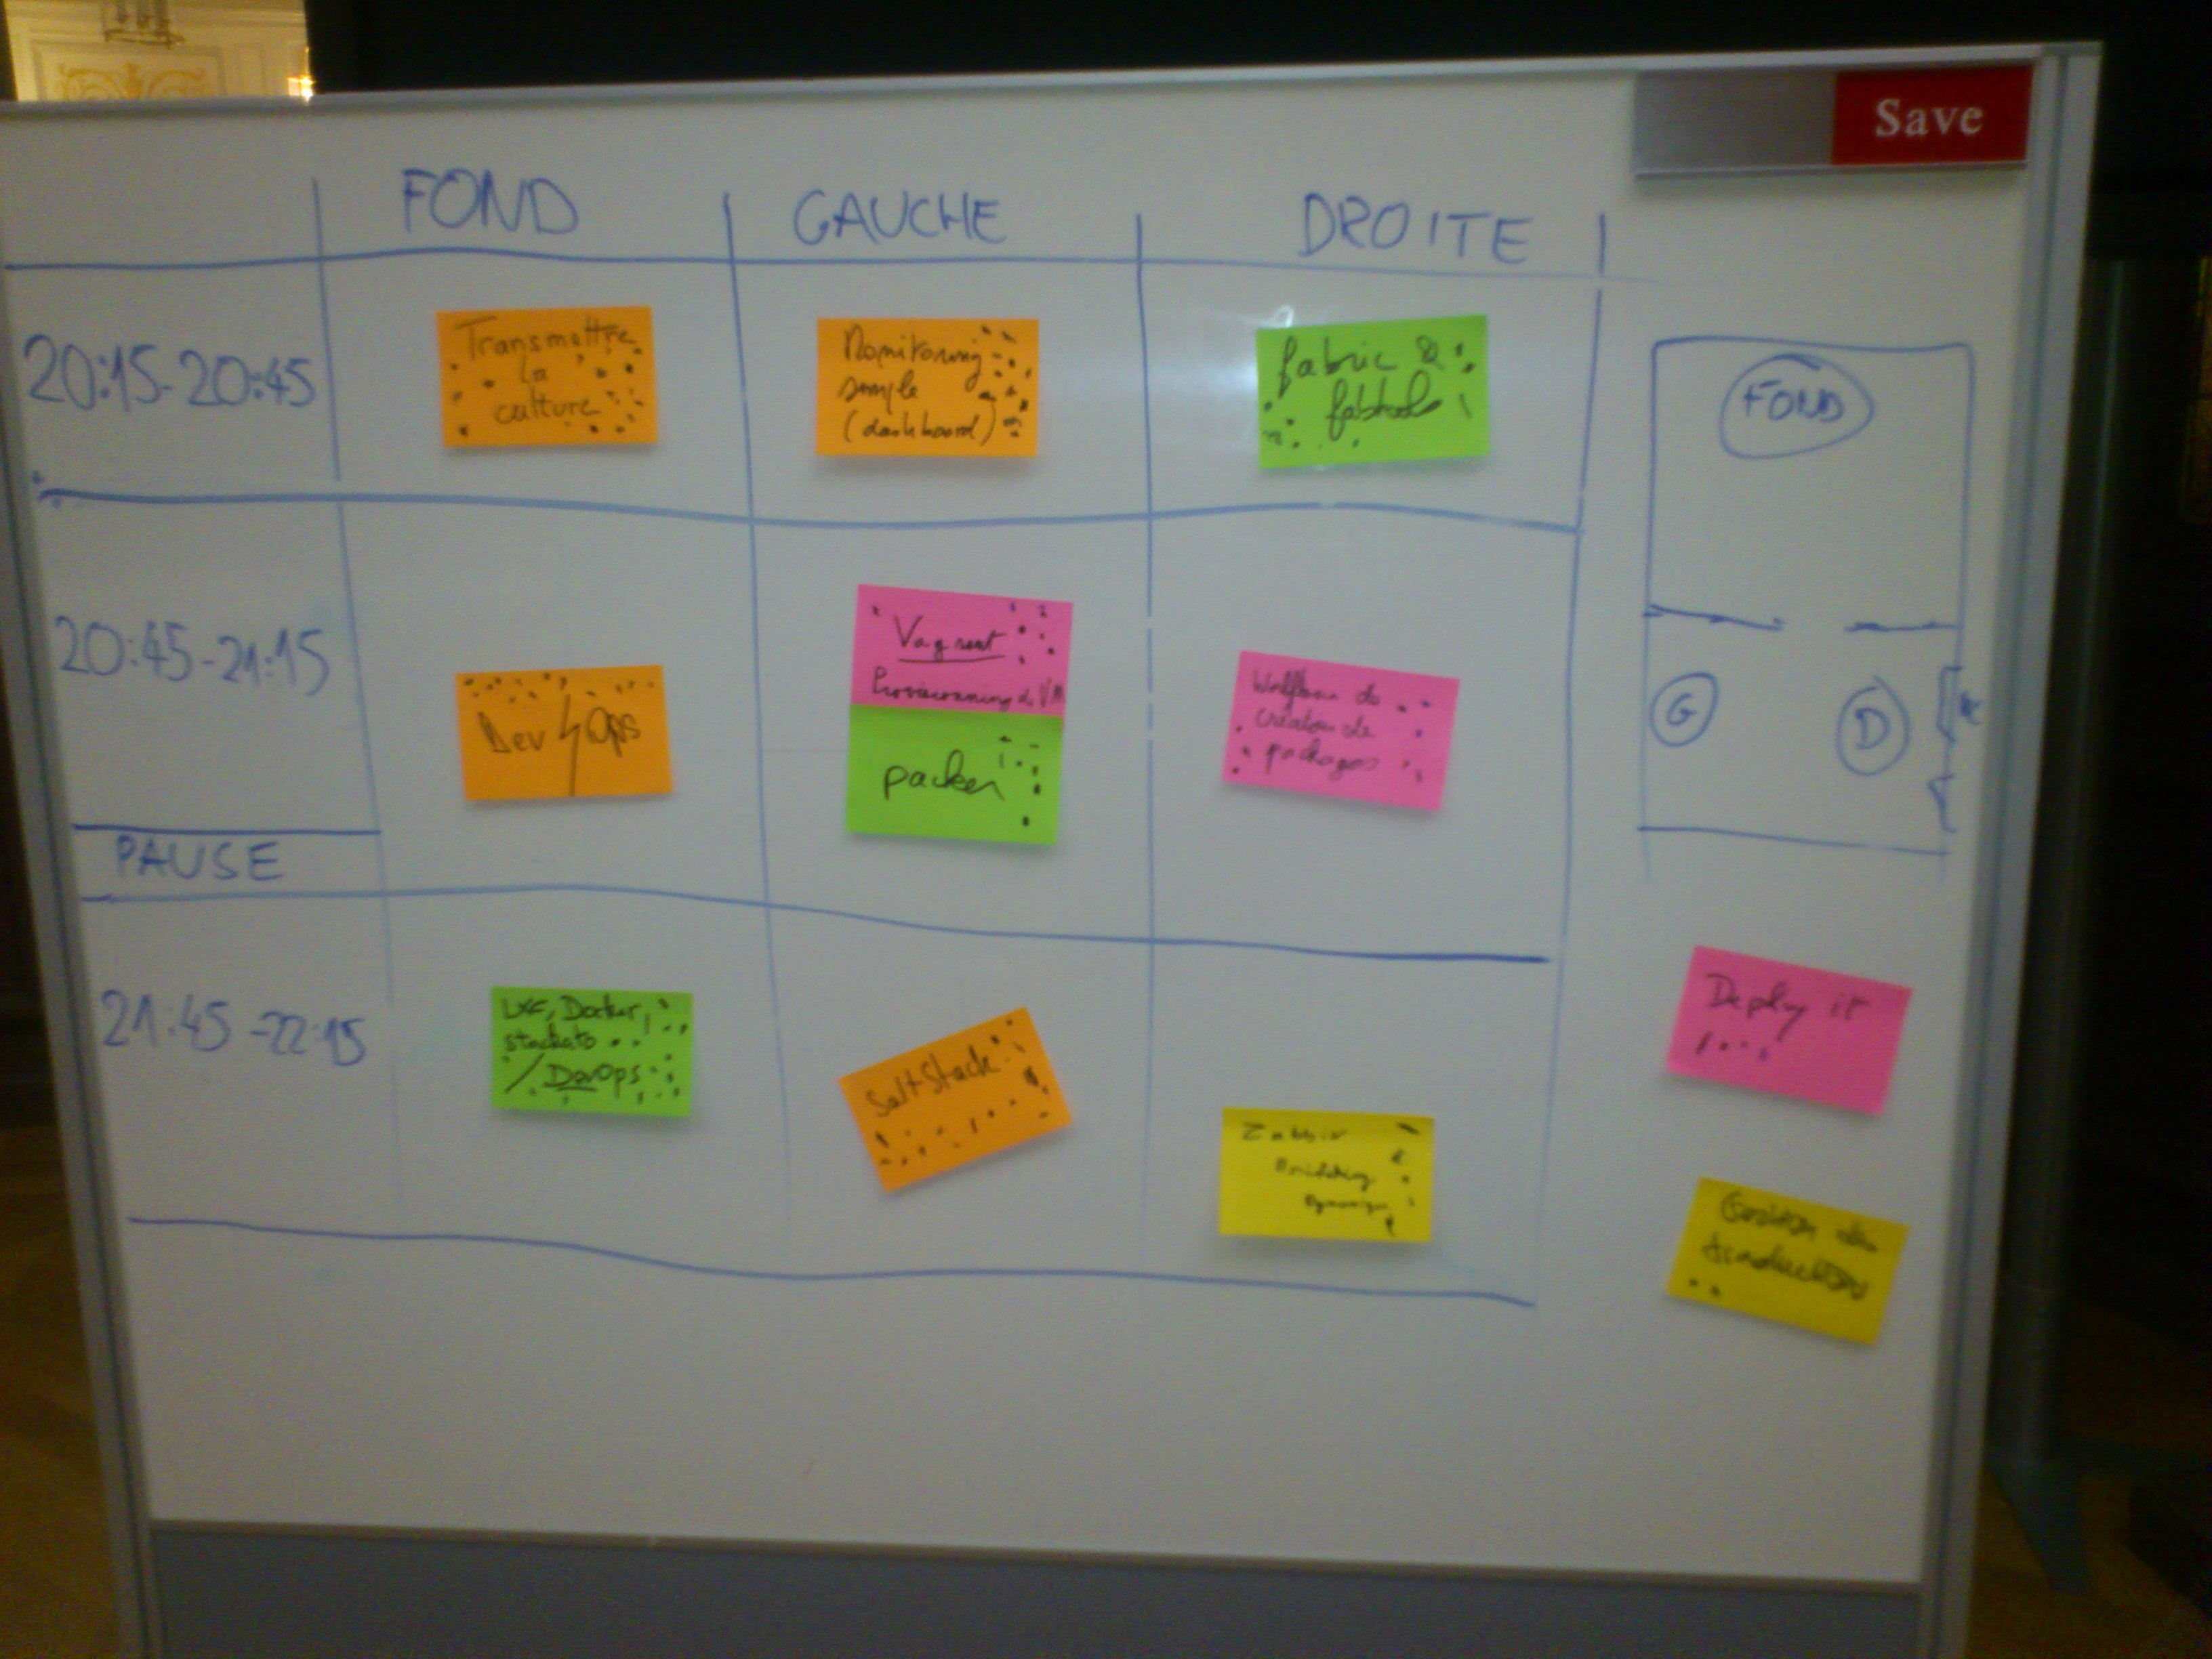 Save
FOND
GAUCHE
DROITE
20:15-20:45
Transmettre
la
culture
Monitoring
simple
(dashboard)
fabric &
FOND
20:45-21:15
Dev Ops
Vagrant
Provisionning de VM
packer
Workflow de
création de
packages
G
D
PAUSE
21:45-22:15
LXC, Docker,
stackato
/ DevOps
SaltStack
Zabbix
Monitoring
Deploy it
Gestion des